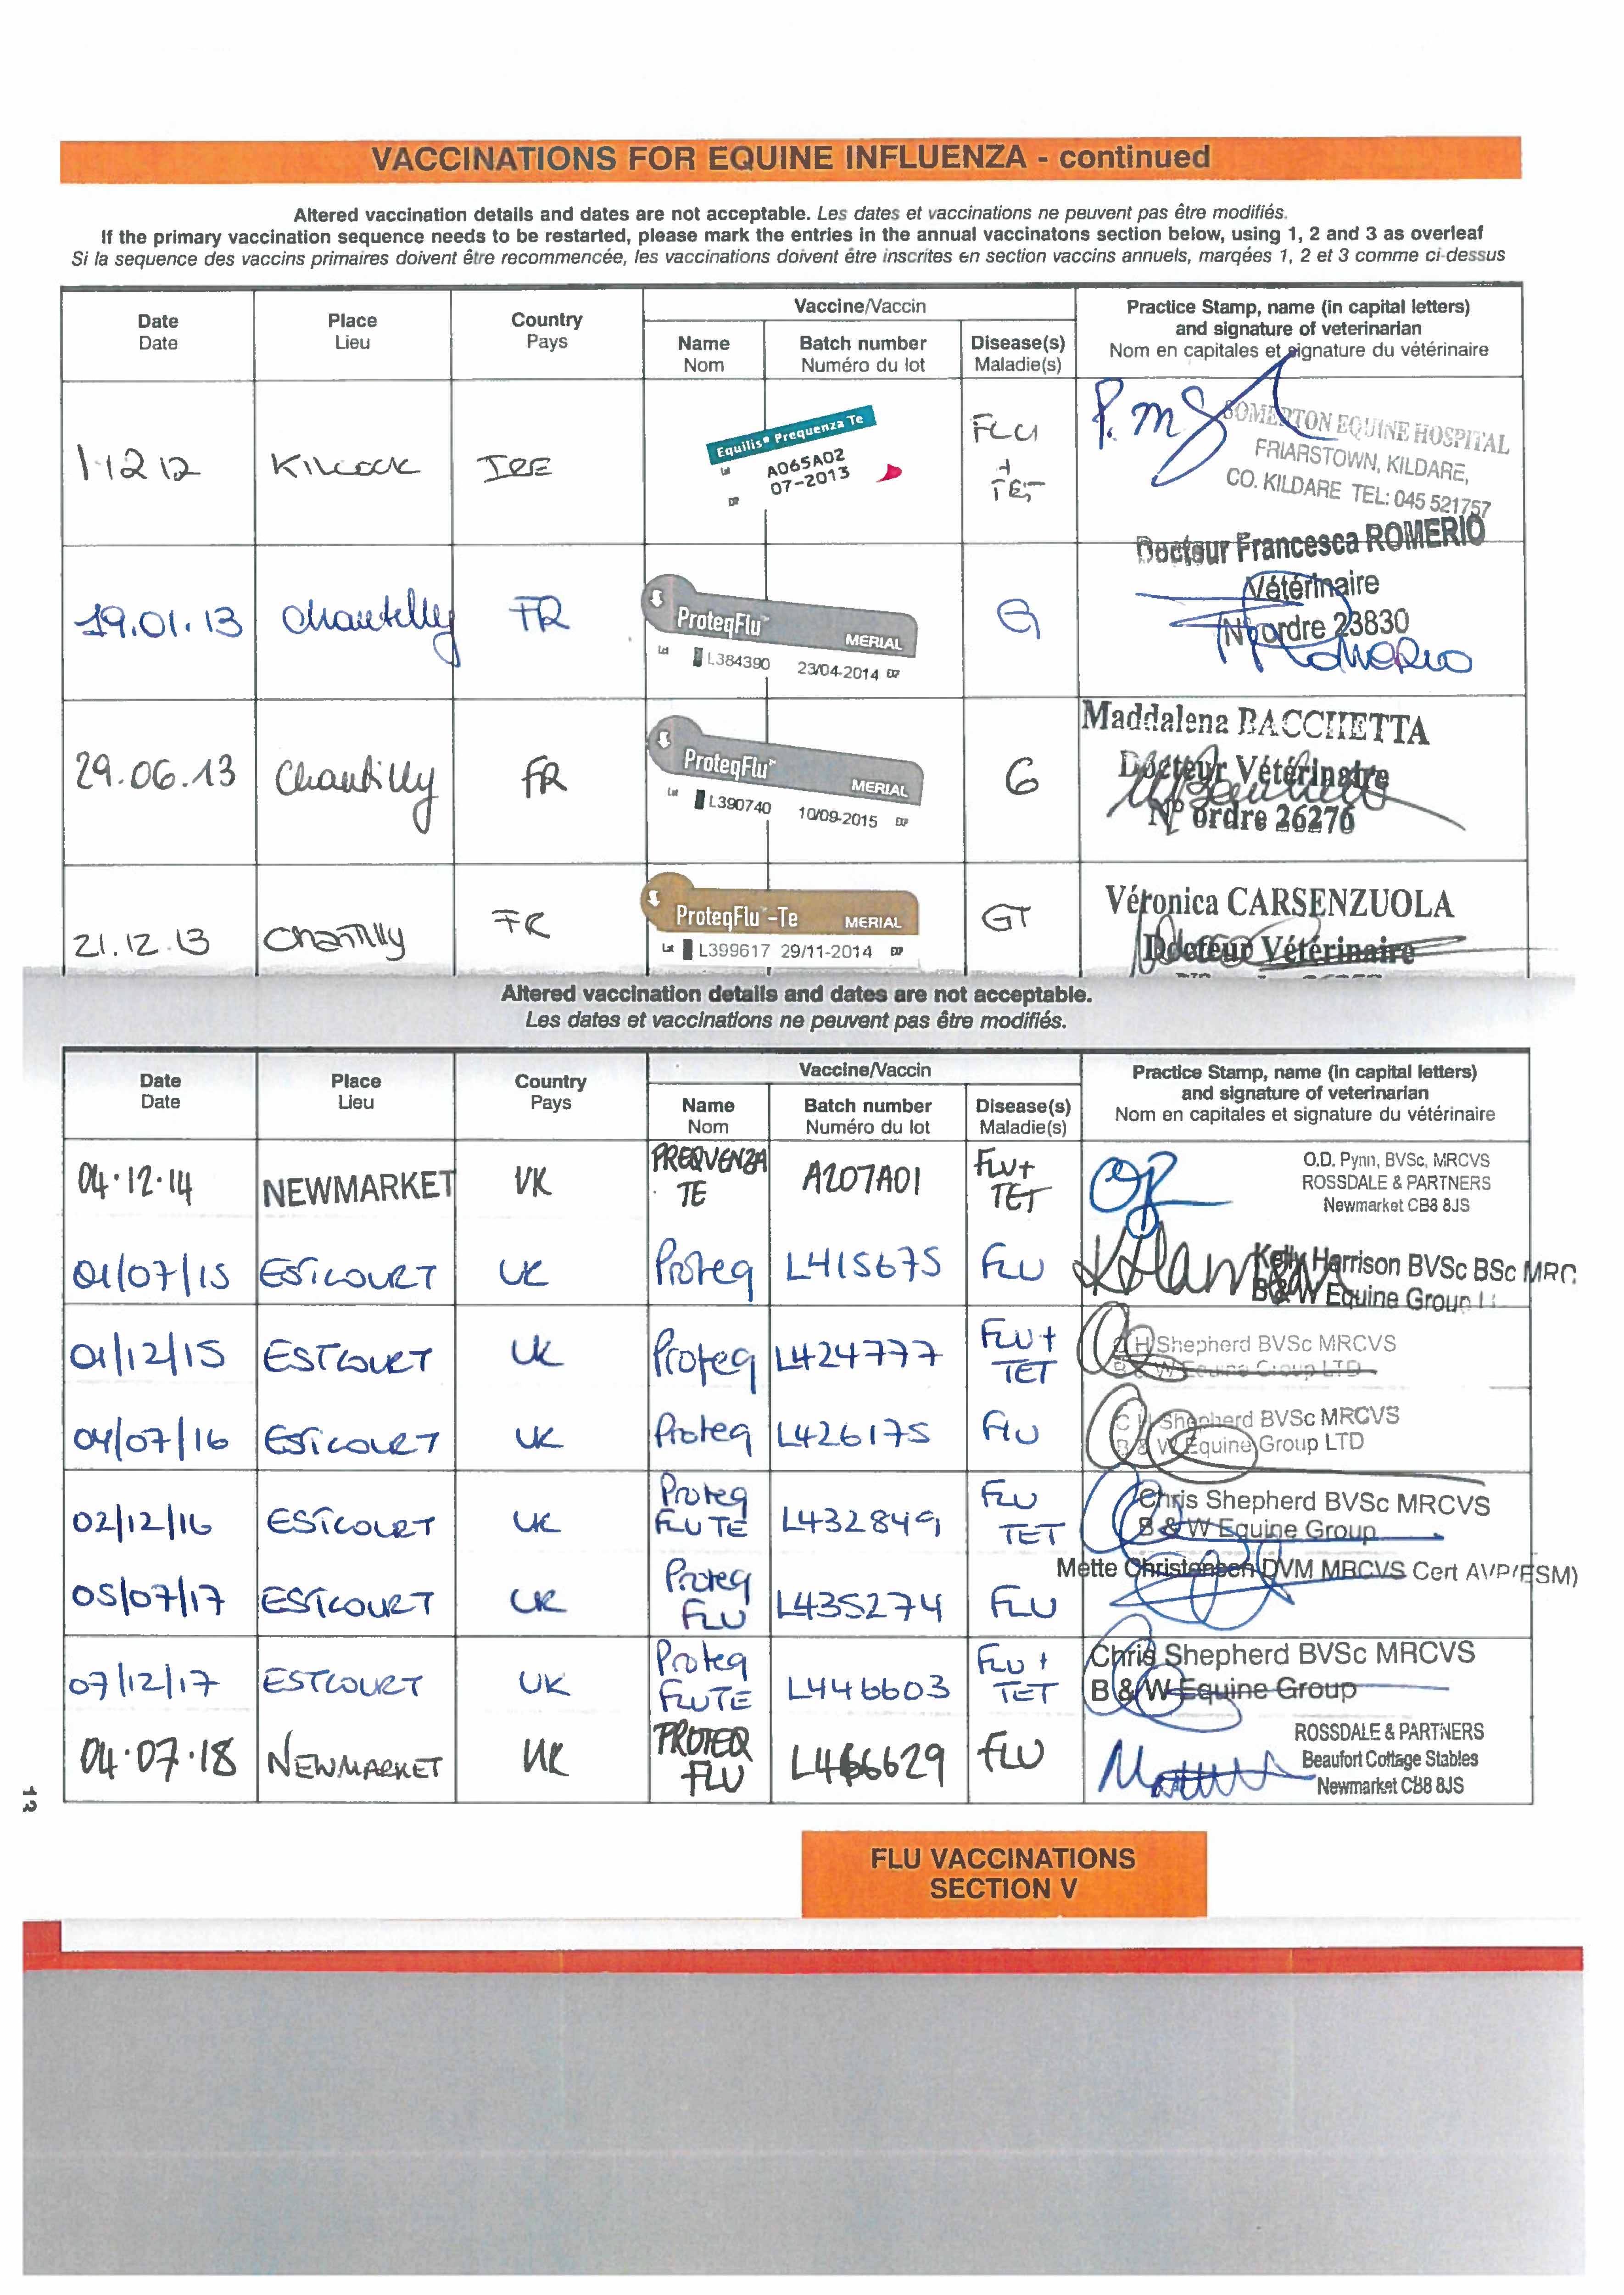 VACCINATIONS FOR EQUINE INFLUENZA - continued
Altered vaccination details and dates are not acceptable. Les dates et vaccinations ne peuvent pas être modifiés.
If the primary vaccination sequence needs to be restarted, please mark the entries in the annual vaccinatons section below, using 1, 2 and 3 as overleaf
Si la sequence des vaccins primaires doivent être recommencée, les vaccinations doivent être inscrites en section vaccins annuels, marqées 1, 2 et 3 comme ci-dessus
Date Place Country Vaccine/Vaccin Practice Stamp, name (in capital letters)
Date Lieu Pays and signature of veterinarian
Name Batch number Disease(s) Nom en capitales et signature du vétérinaire
Nom Numéro du lot Maladie(s)
1 12 12 KILCOCK IRE Equilis® Prequenza Te FLU P.M
Lot A065A02 + SOMERTON EQUINE HOSPITAL
EXP 07-2013 TET FRIARSTOWN, KILDARE,
CO. KILDARE TEL: 045 521757
Docteur Francesca ROMERIO
19.01.13 Chantilly FR ProteqFlu™ MERIAL G Vétérinaire
Lot L384390 23/04-2014 EXP N° ordre 23830
Romerio
29.06.13 Chantilly FR ProteqFlu™ MERIAL G Maddalena BACCHETTA
Lot L390740 10/09-2015 EXP Docteur Vétérinaire
N° ordre 26276
21.12.13 Chantilly FR ProteqFlu™-Te MERIAL GT Véronica CARSENZUOLA
Lot L399617 29/11-2014 EXP Docteur Vétérinaire
Altered vaccination details and dates are not acceptable.
Les dates et vaccinations ne peuvent pas être modifiés.
Date Place Country Vaccine/Vaccin Practice Stamp, name (in capital letters)
Date Lieu Pays and signature of veterinarian
Name Batch number Disease(s) Nom en capitales et signature du vétérinaire
Nom Numéro du lot Maladie(s)
04.12.14 NEWMARKET UK PREQUENZA TE A207A01 FLU+ TET O.D. Pynn, BVSc, MRCVS
ROSSDALE & PARTNERS
Newmarket CB8 8JS
01/07/15 ESTCOURT UK Proteq L415675 FLU Kelly Harrison BVSc BSc MRC
B & W Equine Group
01/12/15 ESTCOURT UK Proteq L424777 FLU+ TET C H Shepherd BVSc MRCVS
B & W Equine Group LTD
04/07/16 ESTCOURT UK Proteq L426175 FLU C H Shepherd BVSc MRCVS
B & W Equine Group LTD
02/12/16 ESTCOURT UK Proteq FLU TE L432849 FLU TET Chris Shepherd BVSc MRCVS
B & W Equine Group
05/07/17 ESTCOURT UK Proteq FLU L435274 FLU Mette Christensen DVM MRCVS Cert AVP(ESM)
07/12/17 ESTCOURT UK Proteq FLUTE L446603 FLU+ TET Chris Shepherd BVSc MRCVS
B & W Equine Group
04.07.18 NEWMARKET UK PROTEQ FLU L466629 FLU ROSSDALE & PARTNERS
Beaufort Cottage Stables
Newmarket CB8 8JS
13
FLU VACCINATIONS
SECTION V